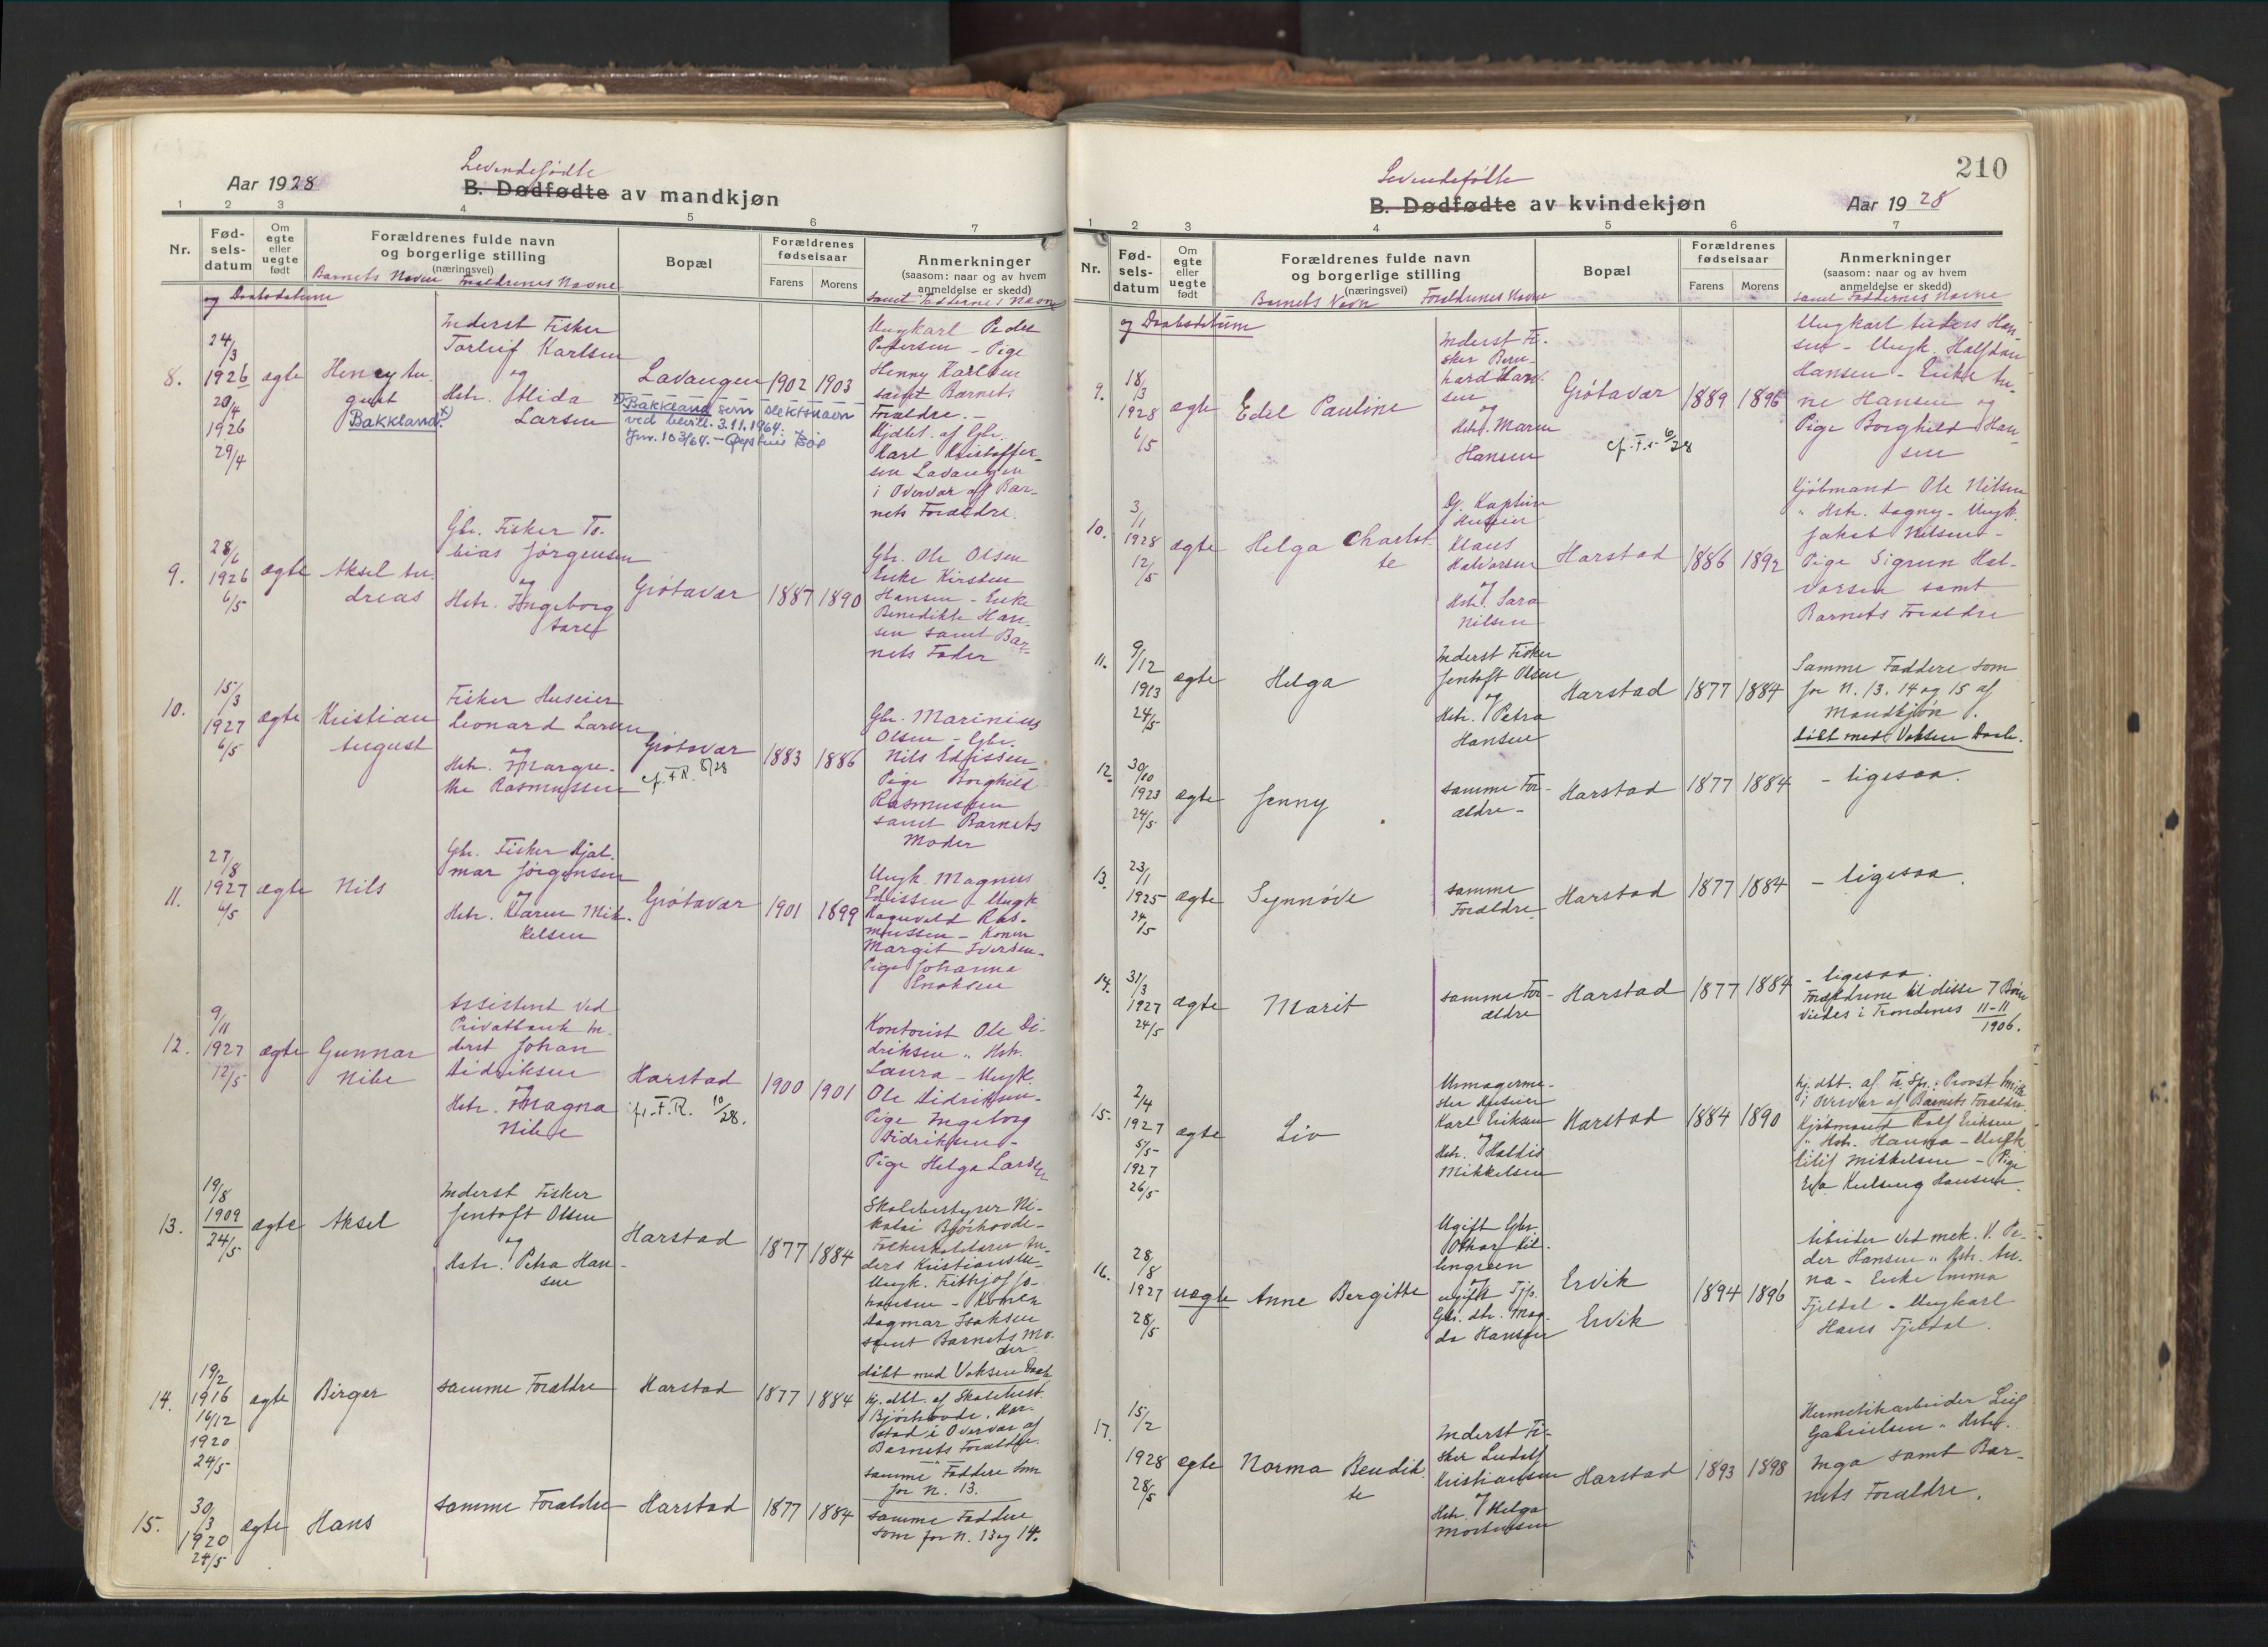 Levendefødte
Aar 1928 B. Dødfødte av mandkjøn
1 2 3 4 5 6 7
Nr.
Fød-
sels-
datum
Om
egte
eller
uegte
født
Forældrenes fulde navn
og borgerlige stilling
(næringsvei)
Barnets Navn Forældrenes Navne
og Daabsdatum
Bopæl
Forældrenes
fødselsaar
Farens Morens
Anmerkninger
(saasom: naar og av hvem
anmeldelse er skedd)
samt Faddernes Navne
8.
24/3
1926
20/4
1926
29/4
ægte
Henry Au-
gust
Bakkland x)
Inderst Fisker
Torleif Karlsen
og
Hstr. Alida
Larsen
Lavangen
1902 1903
x) Bakkland som slektsnavn
ved bevill. 3.11.1964.
Jnr. 103/64. –
Ungkarl Peder
Pedersen – Pige
Henny Karlsen
samt Barnets
Forældre. –
Hjdbt. af Gbr.
Karl Kristoffer-
sen Lavangen
i Overvær af Bar-
nets Forældre.
9.
28/6
1926
6/5
ægte
Aksel An-
dreas
Gbr. Fisker To-
bias Jørgensen
og
Hstr. Ingeborg
Grøtavær
1887 1890
Gbr. Ole Olsen
Enke Kirsten
Hansen – Enke
Benedikte Han-
sen samt Bar-
nets Fader
10.
15/3
1927
6/5
ægte
Kristian
August
Fisker Huseier
Leonard Larsen
og
Hstr. Margre-
the Rasmussen
Grøtavær
cf. F.R. 8/28
1883 1886
Gbr. Marinius
Olsen – Gbr.
Nils Edissen –
Pige Borghild
Rasmussen
samt Barnets
Moder
11.
27/8
1927
6/5
ægte
Nils
Gbr. Fisker Hjal-
mar Jørgensen
og
Hstr. Karen Mik-
kelsen
Grøtavær
1901 1899
Ungk. Magnus
Edissen – Ungk
Ragnvald Ras-
mussen – Konen
Margit Iversen –
Pige Johanna
Enoksen
12.
9/11
1927
12/5
ægte
Gunnar
Nibe
Assistent ved
Privatbank In-
derst Johan
Didriksen
og
Hstr. Magna
Nibe
Harstad
cf. F.R. 10/28.
1900 1901
Kontorist Ole Di-
driksen " Hstr.
Laura – Ungk.
Ole Didriksen –
Pige Ingeborg
Didriksen –
Pige Helga Larsen
13.
19/8
1909
24/5
ægte
Aksel
Inderst Fisker
Jentoft Olsen
og
Hstr. Petra Han-
sen
Harstad
1877 1884
Skolebestyrer Ni-
kolai Bjørhovde –
Folkeskolelærer An-
ders Kristiansen –
Ungk. Fithjof Jo-
hansen – Konen
Dagmar Isaksen
samt Barnets Mo-
der
døbt med Voksen Daab
14.
19/2
1916
16/12
1920
24/5
ægte
Birger
samme Forældre
Harstad
1877 1884
hj. dbt. af Skolebest.
Bjørhovde, Har-
stad i Overvær af
Barnets Forældre.
samme Faddere som
for N. 13.
15.
30/3
1920
24/5
ægte
Hans
samme Forældre
Harstad
1877 1884
samme Faddere
som for N. 13 og 14.
210
Levendefødte
B. Dødfødte av kvindekjøn Aar 1928
1 2 3 4 5 6 7
Nr.
Fød-
sels-
datum
Om
egte
eller
uegte
født
Forældrenes fulde navn
og borgerlige stilling
(næringsvei)
Barnets Navn Forældrenes Navne
og Daabsdatum
Bopæl
Forældrenes
fødselsaar
Farens Morens
Anmerkninger
(saasom: naar og av hvem
anmeldelse er skedd)
samt Faddernes Navne
9.
18/3
1928
6/5
ægte
Edel Pauline
Inderst Fi-
sker Bern-
hard Han-
sen
og
Hstr. Maren
Hansen
Grøtavær
cf. F.R. 6/28
1889 1896
Ungkarl Anders Han-
sen – Ungk. Halfdan
Hansen – Enke An-
ne Hansen og
Pige Borghild Han-
sen
10.
3/1
1928
12/5
ægte
Helga Charlot-
te
Huseier
Klaus
Halvorsen
og
Hstr. Sara
Nilsen
Harstad
1886 1892
Kjøbmand Ole Nilsen
" Hstr. Dagny – Ungk.
Jakob Nilsen –
Pige Sigrun Hal-
vorsen samt
Barnets Forældre
11.
9/12
1913
24/5
ægte
Helga
Inderst Fisker
Jentoft Olsen
og
Hstr. Petra
Hansen
Harstad
1877 1884
Samme Faddere som
for N. 13, 14 og 15 af
Mandkjøn.
døbt med Voksen Daab.
12.
30/10
1923
24/5
ægte
Jenny
samme For-
ældre –
Harstad
1877 1884
– ligesaa.
13.
23/1
1925
24/5
ægte
Synnøve
samme
Forældre
Harstad
1877 1884
– ligesaa.
14.
31/3
1927
24/5
ægte
Marit
samme For-
ældre
Harstad
1877 1884
– ligesaa.
Forældrene til disse 7 Børn
viedes i Trondenes 11-11
1906.
15.
2/4
1927
5/5
1927
26/5
ægte
Liv
Urmagerme-
ster Huseier
Karl Eriksen
og
Hstr. Haldis
Mikkelsen
Harstad
1884 1890
hj. dbt. af Provst
i Overvær af Barnets Forældre
Kjøbmand Rolf Eriksen
" Hstr. Hanna – Ungk
Eilif Mikkelsen – Pige
Eva Hansen.
16.
28/8
1927
28/5
uægte
Anne Bergitte
Ugift Gbr.
Othar Kil-
lengreen
og
ugift Tjp.
Gbr. dtr. Mag-
da Hansen
Ervik
Ervik
1894 1896
Arbeider ved mek. V. Pe-
der Hansen " Hstr. An-
na – Enke Emma
Fjeldal – Ungkarl
Hans Fjeldal.
17.
15/2
1928
28/5
ægte
Norma Bendik-
te
Inderst Fi-
sker Ludolf
Kristiansen
og
Hstr. Helga
Mortensen
Harstad
1893 1898
Hermetikarbeider Leif
Gabrielsen " Hstr.
Inga samt Bar-
nets Forældre.